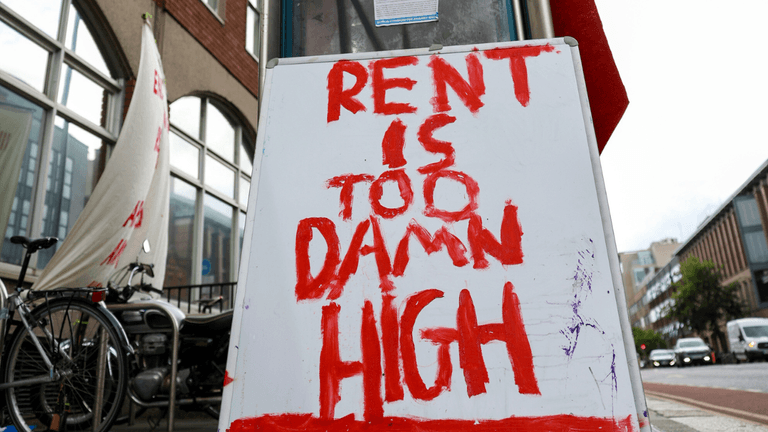 RENT
IS
TOO
DAMN
HIGH